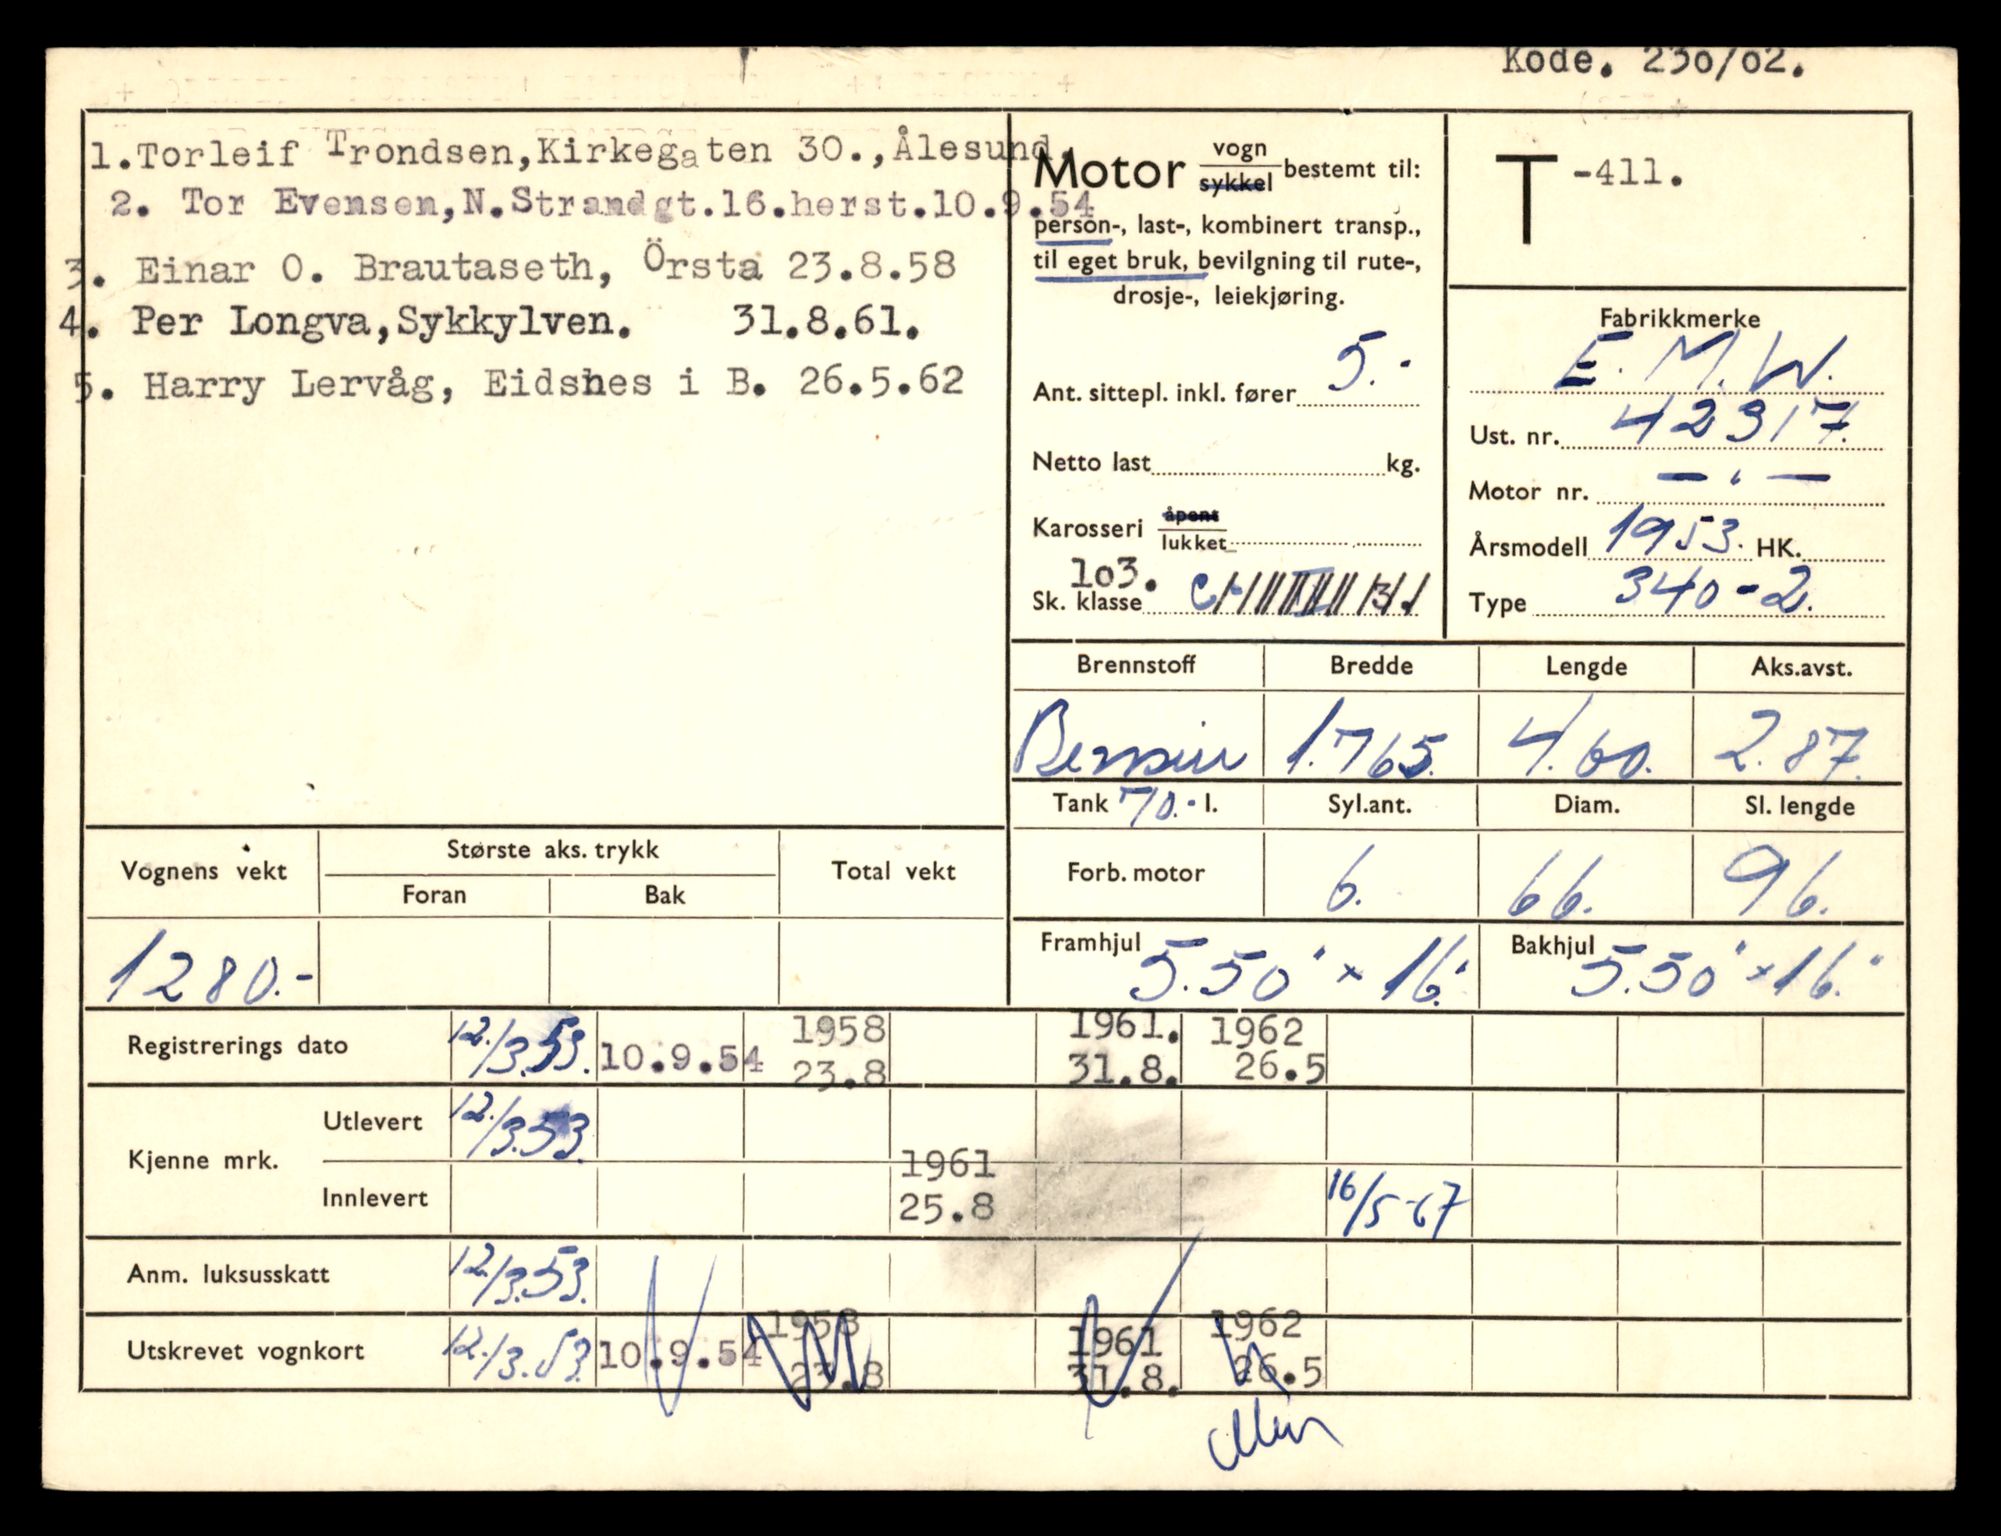 Kode. 230/02.
1.Torleif Trondsen,Kirkegaten 30.,Ålesund.
2. Tor Evensen,N.Strandgt.16.herst.10.9.54
3. Einar O. Brautaseth, Örsta 23.8.58
4. Per Longva,Sykkylven. 31.8.61.
5. Harry Lervåg, Eidsnes i B. 26.5.62
Motor vogn sykkel bestemt til:
person-, last-, kombinert transp.,
til eget bruk, bevilgning til rute-,
drosje-, leiekjøring.
Ant. sittepl. inkl. fører 5.-
Netto last kg.
Karosseri åpent lukket
103.
Sk. klasse
T -411.
Fabrikkmerke
E.M.W.
Ust. nr. 42317.
Motor nr. — " —
Årsmodell 1953. HK.
Type 340-2.
Brennstoff Bredde Lengde Aks.avst.
Bensin 1.765. 4.60. 2.87.
Tank 70.- l. Syl.ant. Diam. Sl. lengde
Forb. motor 6. 66. 96.
Framhjul 5.50" x 16." Bakhjul 5.50" x 16."
Vognens vekt Største aks. trykk Total vekt
Foran Bak
1280.-
Registrerings dato 12./3.53. 10.9.54 1958 23.8 1961. 31.8. 1962 26.5
Kjenne mrk. Utlevert 12./3.53.
Innlevert 1961 25.8 16/5-67
Anm. luksusskatt 12./3.53.
Utskrevet vognkort 12./3.53. 10.9.54 1958 23.8 1961 31.8. 1962 26.5